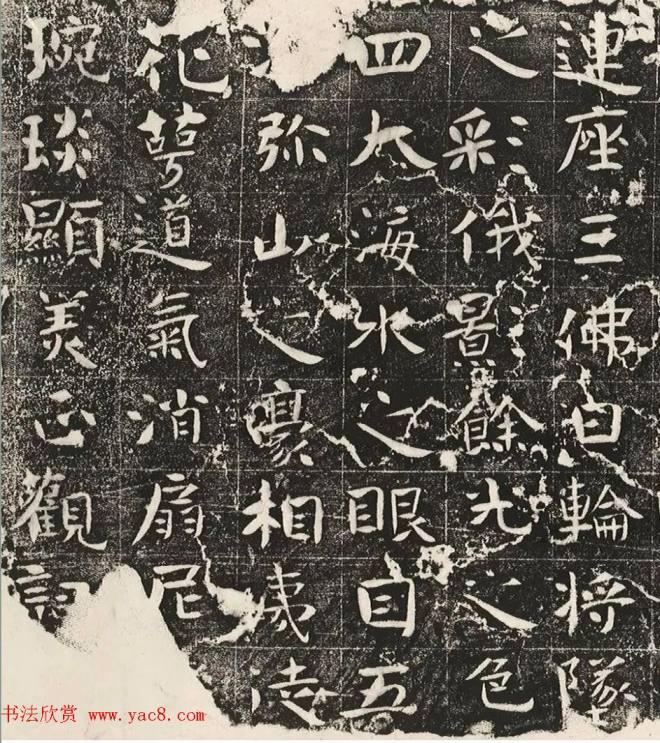 連座三佛日輪将墜
之彩俄影餘光之色
四大海水之眼目五
弥山之豪相夷凌
花萼道氣消扇尼
琬琰顯美正觀
书法欣赏 www.yac8.com